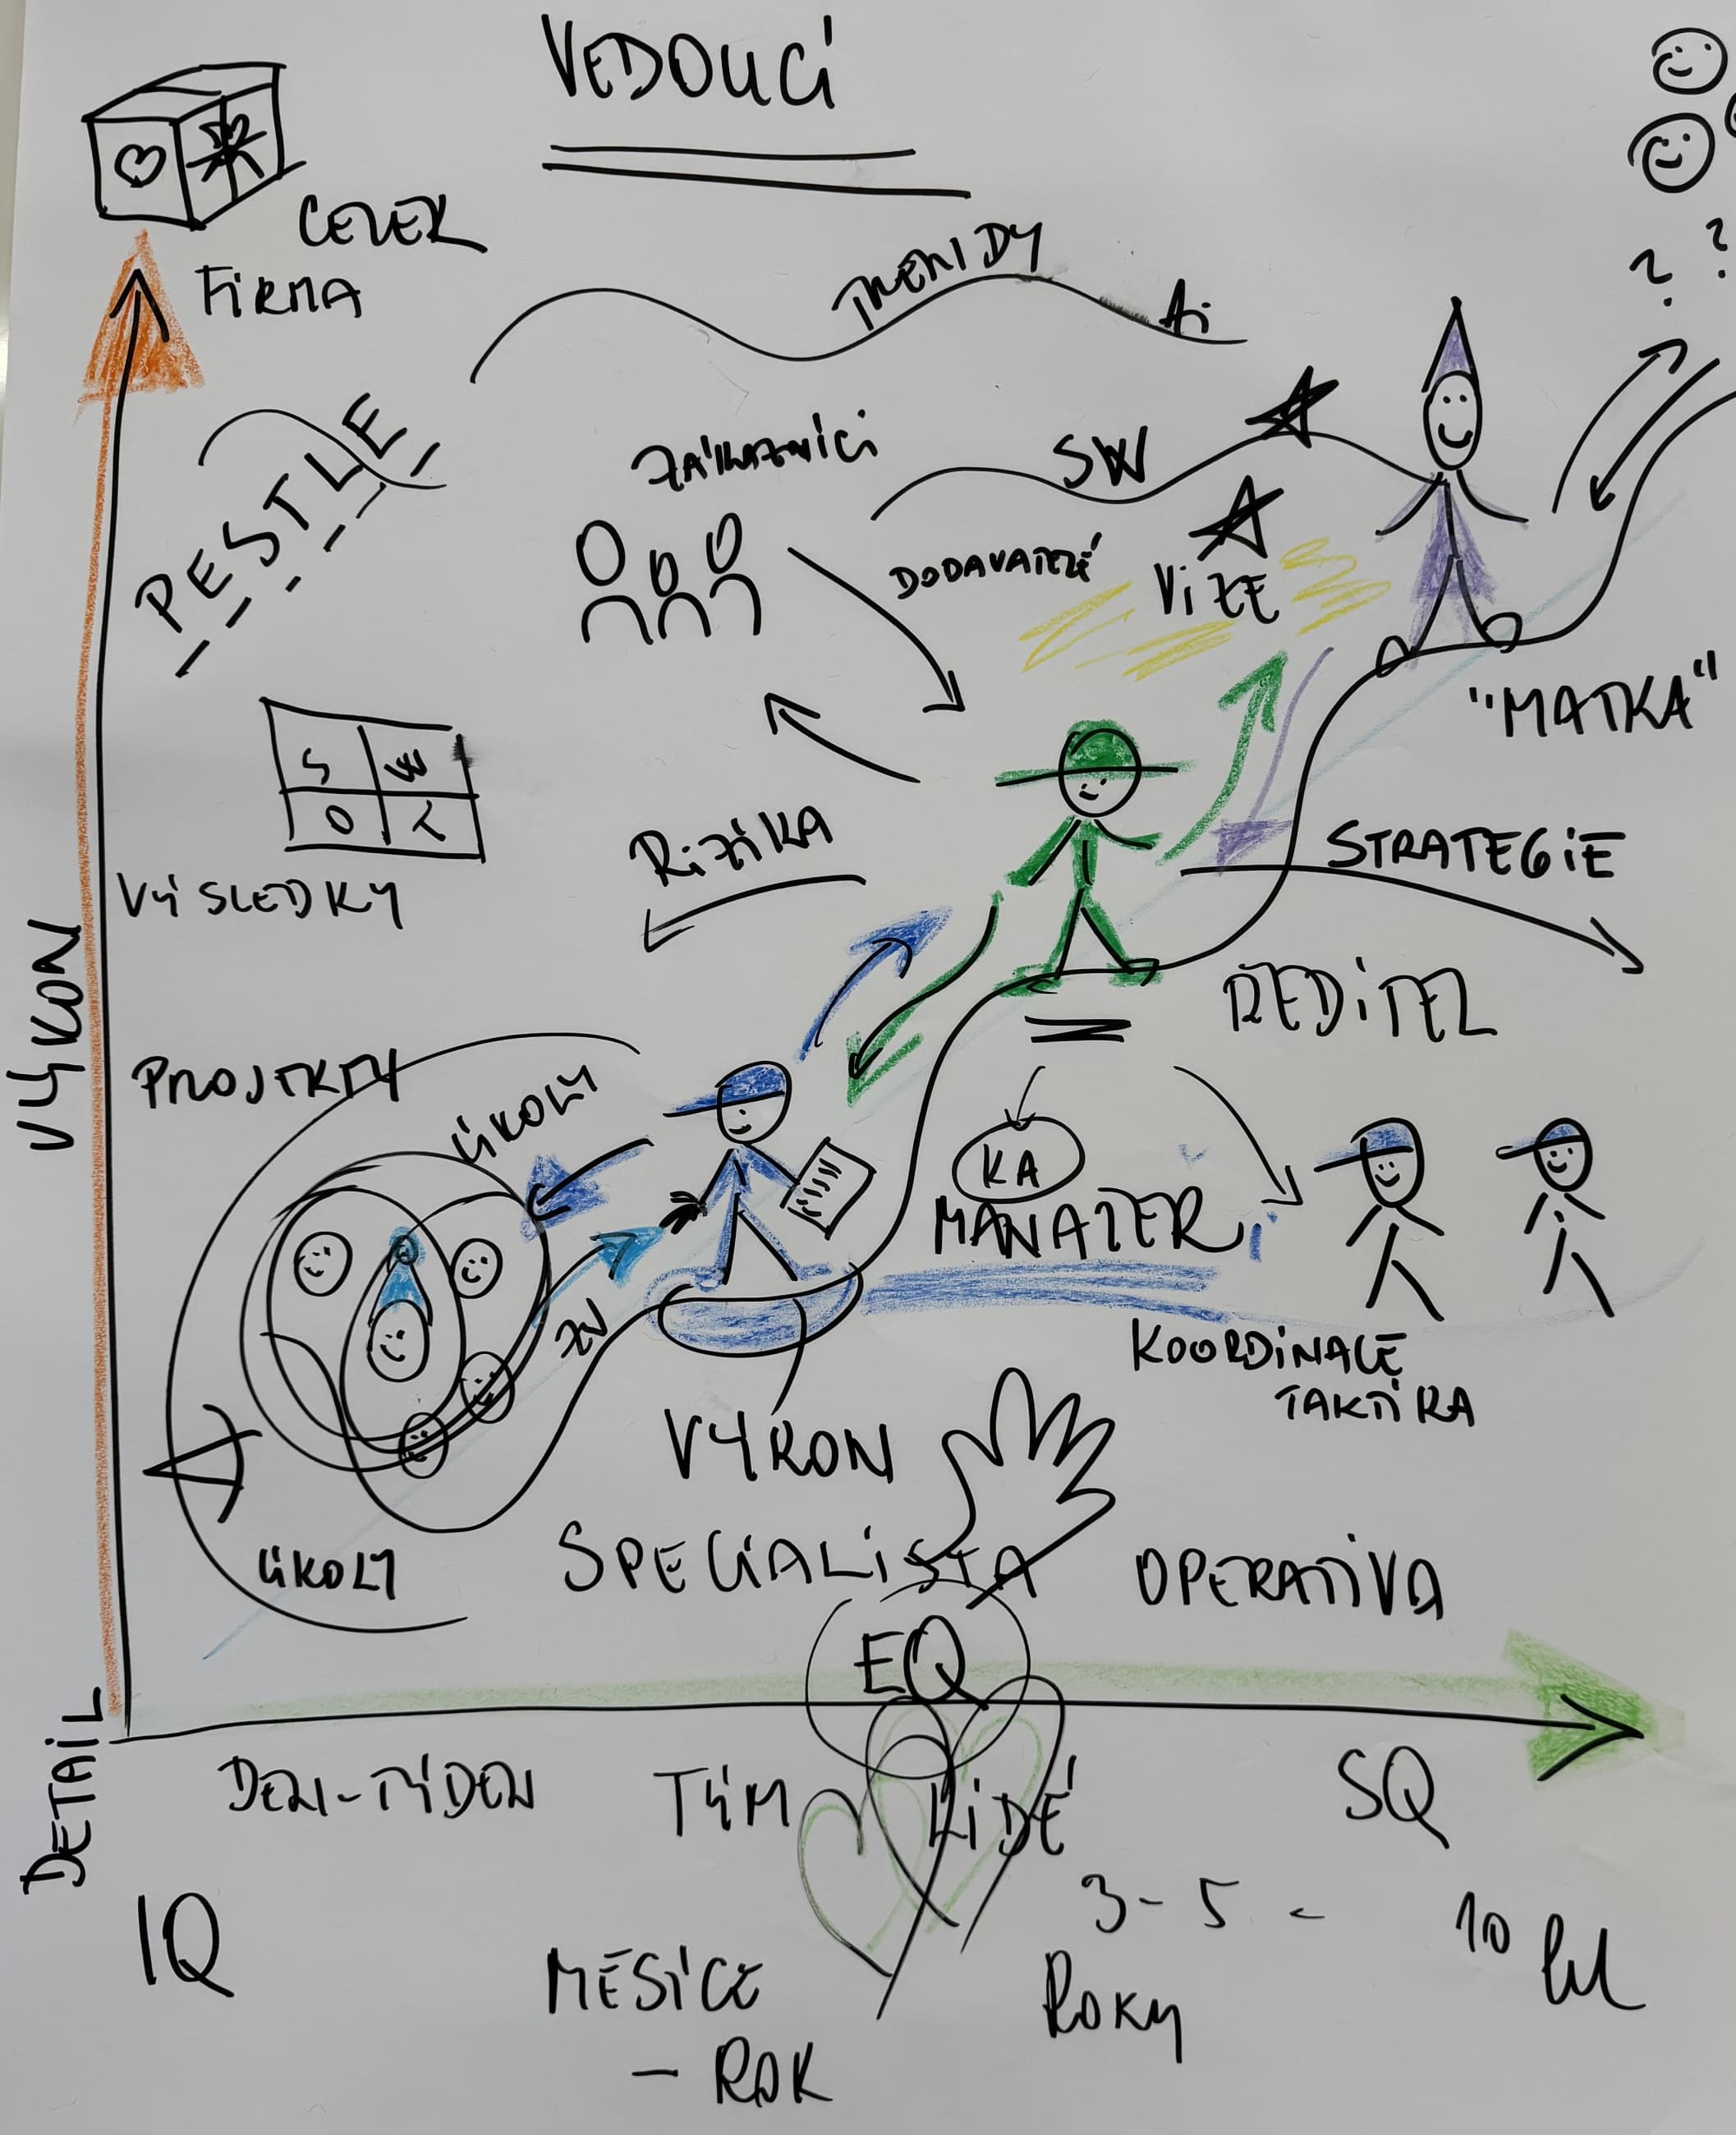 VEDOUCÍ
CELEK
FiRMA
TRENDY
Ai
? ?
PESTLE
ZÁKAZNÍCi
SW
DODAVATELÉ
ViZE
"MATKA"
S W
O T
RiZiKA
STRATEGiE
VÝSLEDKY
ŘEDiTEL
VÝKON
PROJEKTY
ÚKOLY
KA
MANAŽER i
ZV
KOORDiNACE
TAKTiKA
VÝKON
SPECiALiSTA
OPERATiVA
ÚKOLY
EQ
DETAiL
DEN-TÝDEN
TÝM
LiDÉ
SQ
IQ
3-5-
10 let
MĚSÍCE
- ROK
ROKY